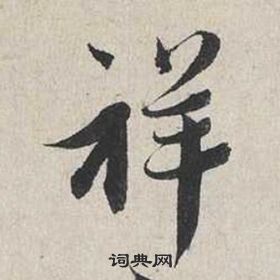 祥
词典网